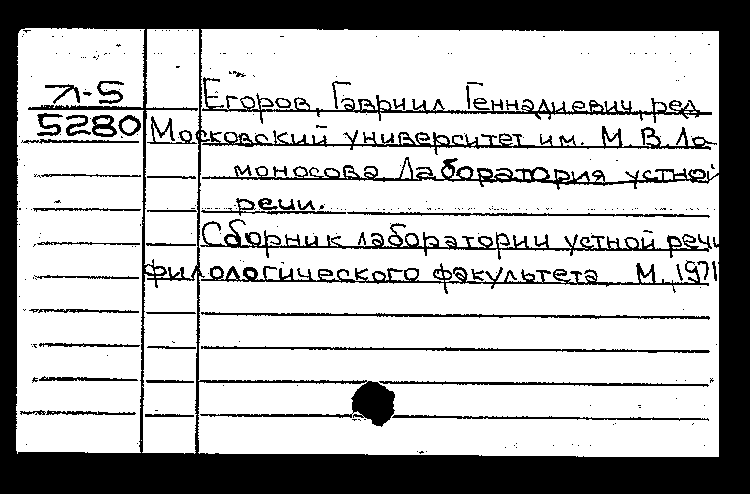 Л-5 Егоров, Гавриил Геннадиевич, ред.
5280 Московский университет им. М. В. Ло-
моносова Лаборатория устной
речи.
Сборник лаборатории устной речи
филологического факультета М., 1971